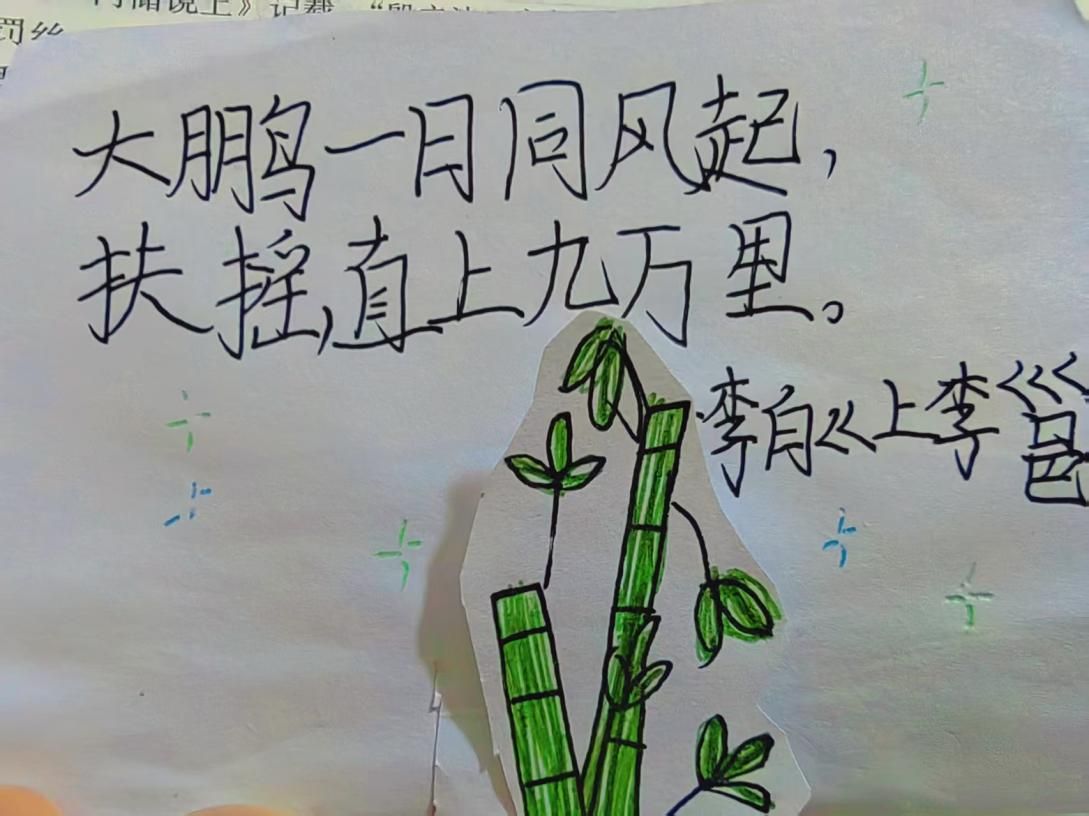 储说上》记载，“殷
罚
大鹏一日同风起，
扶摇，直上九万里。
李白《上李邕